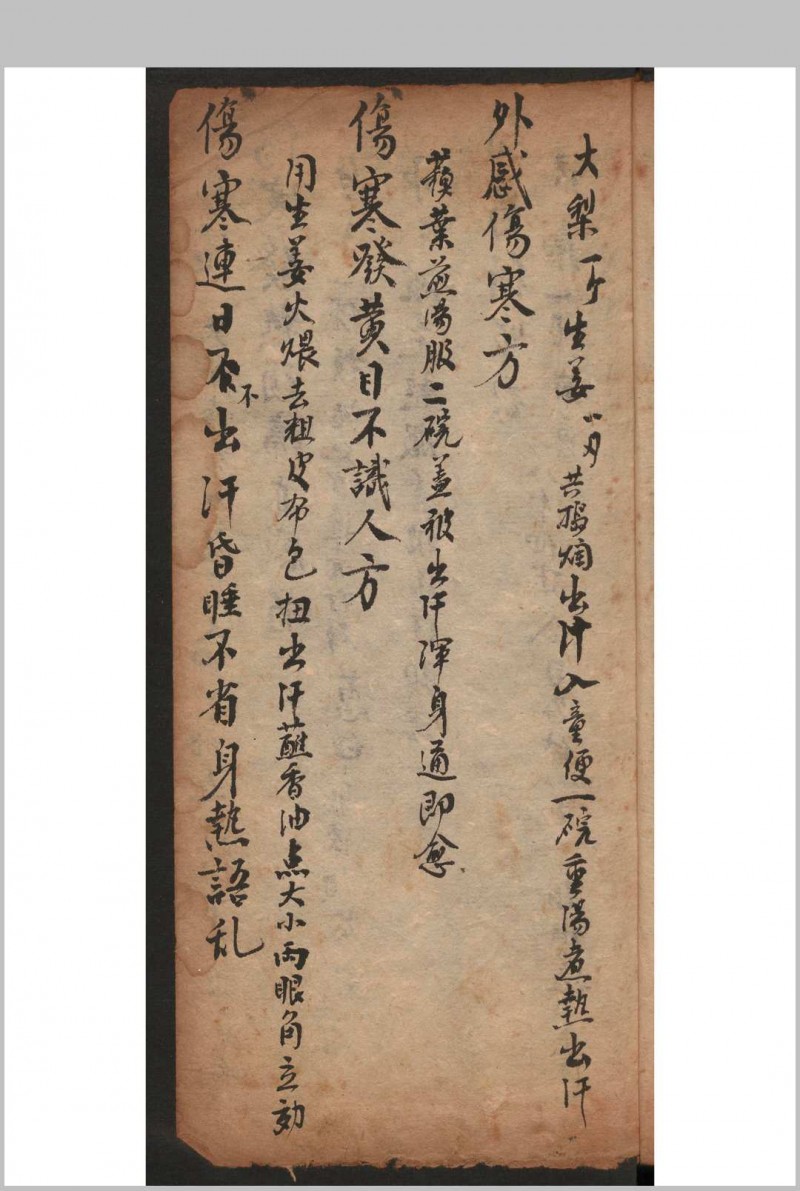 大梨一个生姜一片共搗爛出汁入童便一碗重湯煮熱出汗
外感傷寒方
蘋葉煎湯服二碗蓋被出汗渾身通即愈
傷寒發黃目不識人方
用生姜火煨去粗皮布包扭出汗蘸香油点大小兩眼角立効
傷寒連日不出汗昏睡不省身熱語乱